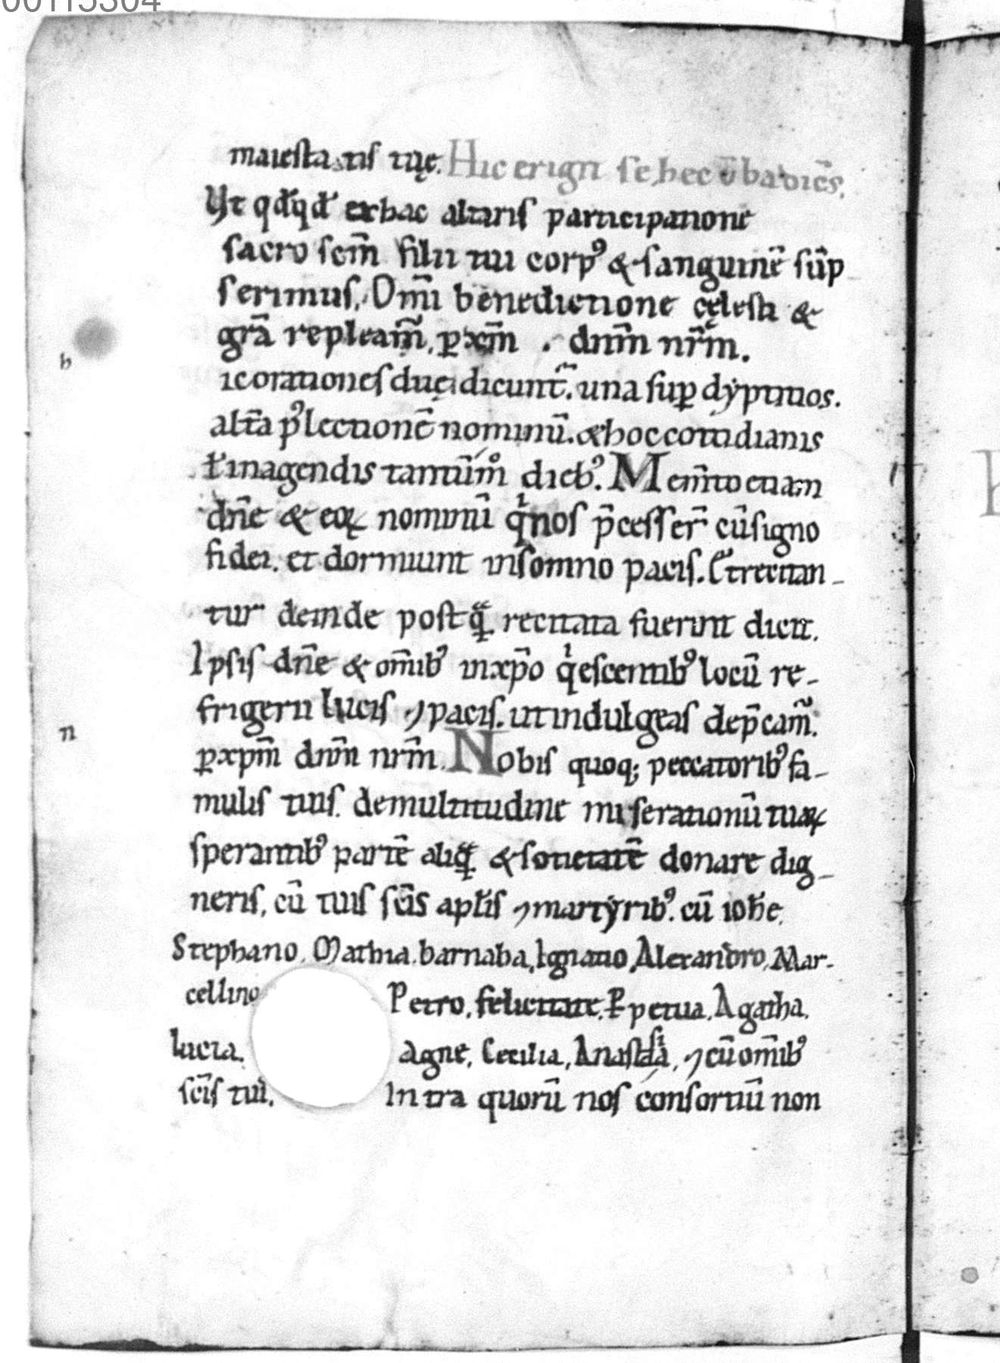 00115304
maiestatis tuę. Hic erigit se hec ūba dicēs,
Ut qd̄qd̄ ex hac altaris participatione
sacro scm̄ filii tui corpꝰ & sanguinē sūp
serimus, Om̄i benedictione cęlesti &
grā repleam̄, ꝑ xp̄m . dnm̄ nr̄m.
ic orationes duę dicunt̄. una suꝑ dẏptitios.
alt̄a pꝰ lectionē nominū. & hoc cottidianis
ł in agendis tantūm̊ diebꝰ. Mem̄to etiam
dn̄e & eoꝝ nominū qͥ nos p̄cesser̄ cū signo
fidei. et dormiunt in somno pacis. Et recitan-
tur deinde postqͣ̄ recitata fuerint dicit.
Ipsis dn̄e & om̄ibꝰ in xp̄o qͥescentibꝰ locū re-
frigerii lucis ⁊ pacis. ut indulgeas dep̄cam̄.
ꝑ xp̄m dnm̄ nr̄m. Nobis quoq; peccatoribꝰ fa-
mulis tuis. de multitudine miserationū tuaꝝ
sperantibꝰ partē aliqͣ̄ & sotietatē donare dig-
neris, cū tuis scīs apłis ⁊ martẏribꝰ. cū ioħe,
Stephano, Mathia. barnaba, Ignatio, Alexandro, Mar-
cellino Petro, felicitate, Ꝑpetua, Agatha,
lucia, Agne, Cecilia, Anastasia, ⁊ cū om̄ibꝰ
scīs tuis, Intra quorū nos consortiū non
h
n